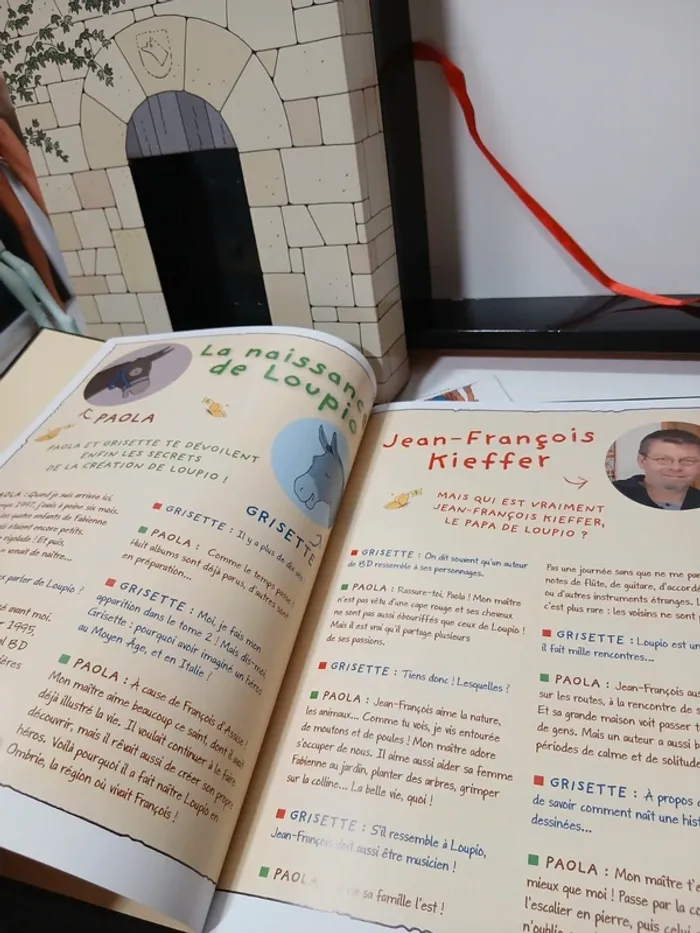 La naissance
de Loupio
PAOLA
PAOLA ET GRISETTE TE DÉVOILENT
ENFIN LES SECRETS
DE LA CRÉATION DE LOUPIO !
GRISETTE
PAOLA : Quand je suis arrivée ici,
1997, j'avais à peine six mois.
quatre enfants de Fabienne
étaient encore petits.
rigolade ! Et puis,
venait de naître...
parler de Loupio ?
avant moi.
1995,
BD
GRISETTE : Il y a plus de dix ans
PAOLA : Comme le temps passe !
Huit albums sont déjà parus, d'autres sont
en préparation...
GRISETTE : Moi, je fais mon
apparition dans le tome 2 ! Mais dis-moi,
Grisette : pourquoi avoir imaginé un héros
au Moyen Âge, et en Italie ?
PAOLA : À cause de François d'Assise !
Mon maître aime beaucoup ce saint, dont il avait
déjà illustré la vie. Il voulait continuer à le faire
découvrir, mais il rêvait aussi de créer son propre
héros. Voilà pourquoi il a fait naître Loupio en
Ombrie, la région où vivait François !
Jean-François
Kieffer
MAIS QUI EST VRAIMENT
JEAN-FRANÇOIS KIEFFER,
LE PAPA DE LOUPIO ?
GRISETTE : On dit souvent qu'un auteur
de BD ressemble à ses personnages.
PAOLA : Rassure-toi, Paola ! Mon maître
n'est pas vêtu d'une cape rouge et ses cheveux
ne sont pas aussi ébouriffés que ceux de Loupio !
Mais il est vrai qu'il partage plusieurs
de ses passions.
GRISETTE : Tiens donc ! Lesquelles ?
PAOLA : Jean-François aime la nature,
les animaux... Comme tu vois, je vis entourée
de moutons et de poules ! Mon maître adore
s'occuper de nous. Il aime aussi aider sa femme
Fabienne au jardin, planter des arbres, grimper
sur la colline... La belle vie, quoi !
GRISETTE : S'il ressemble à Loupio,
Jean-François doit aussi être musicien !
PAOLA
sa famille l'est !
Pas une journée sans que ne me
notes de flûte, de guitare, d'accordé
ou d'autres instruments étranges.
c'est plus rare : les voisins ne sont
GRISETTE : Loupio est un
il fait mille rencontres...
PAOLA : Jean-François au
sur les routes, à la rencontre de
Et sa grande maison voit passer
de gens. Mais un auteur a aussi
périodes de calme et de solitude
GRISETTE : À propos
de savoir comment naît une hist
dessinées...
PAOLA : Mon maître t'e
mieux que moi ! Passe par la co
l'escalier en pierre, puis celui
n'oublie